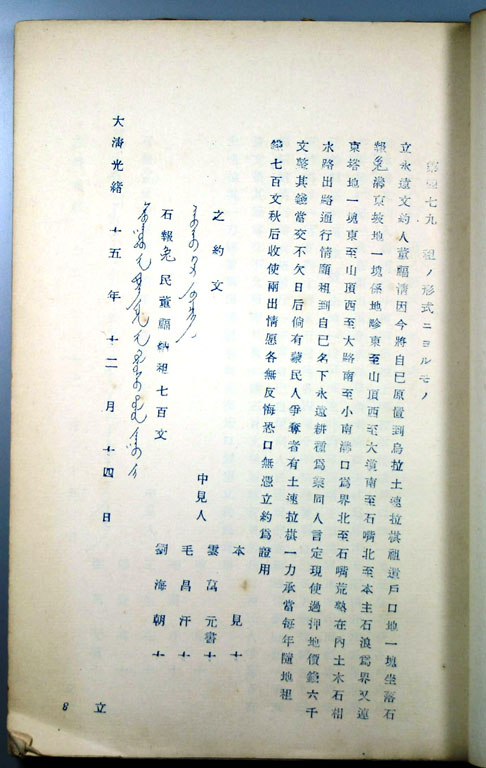 七九 租ノ形式ニヨルモノ
立永遠文約人董福清因今將自己原置到烏拉土速拉棋祖遺戶口地一塊坐落石
報兔溝東坡地一塊係地畛東至山頂西至大道南至石嘴北至本主石浪爲界又連
東塔地一塊東至山頂西至大路南至小南溝口爲界北至石嘴荒熟在內土木石相
水路出路通行情願租到自己名下永遠耕種爲業同人言定現使過押地價錢六千
文整其錢當交不欠日后倘有蒙民人爭奪者有土速拉棋一力承當每年隨地租
錢七百文秋后收使兩出情愿各無反悔恐口無憑立約爲證用
本見十
中見人 雲萬元書十
毛昌汗十
劉海朝十
之約文
石報兔民董願納租七百文
大清光緒十五年十二月十四日
立
8